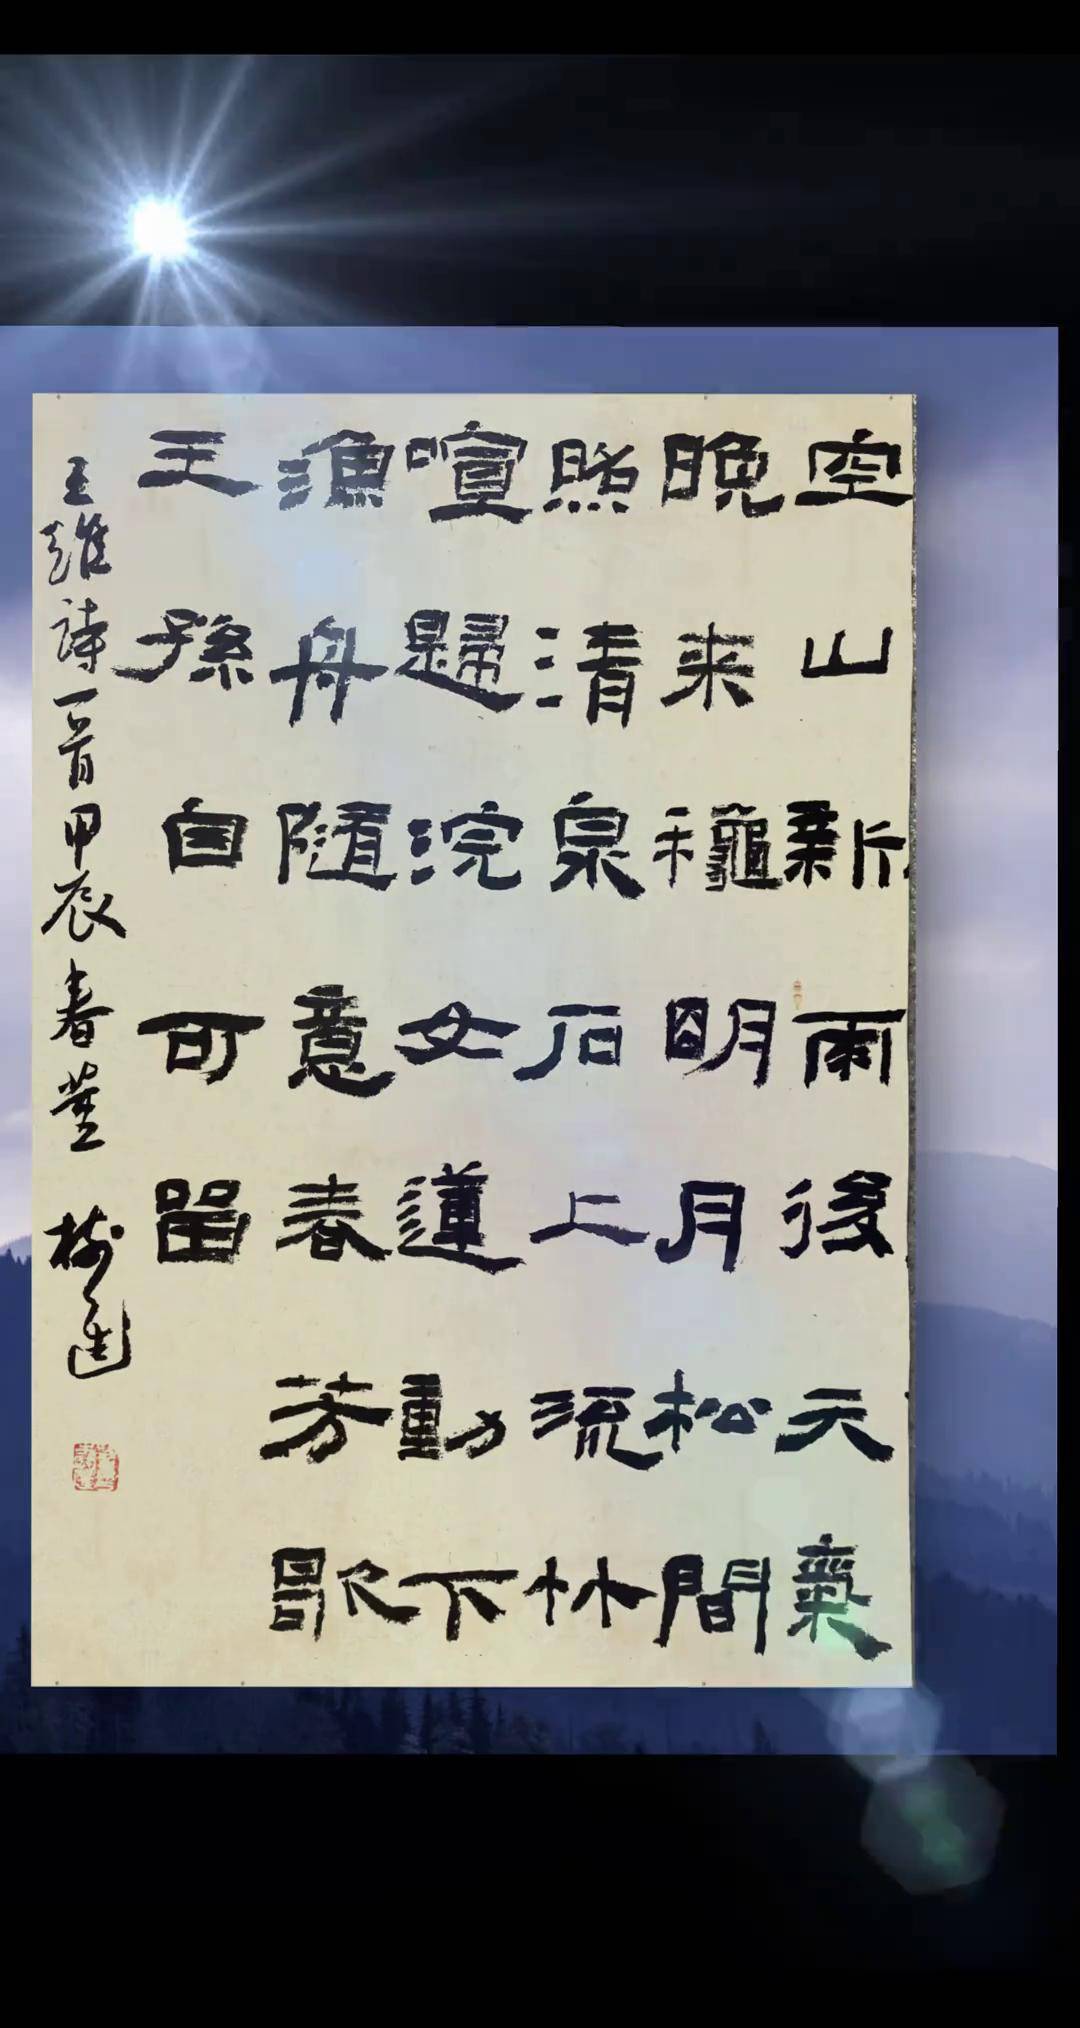 空山新雨後天氣
晚來龝明月松間
照清泉石上流竹
喧歸浣女蓮動下
漁舟隨意春芳歇
王孫自可留
王維詩一首甲辰春樹進